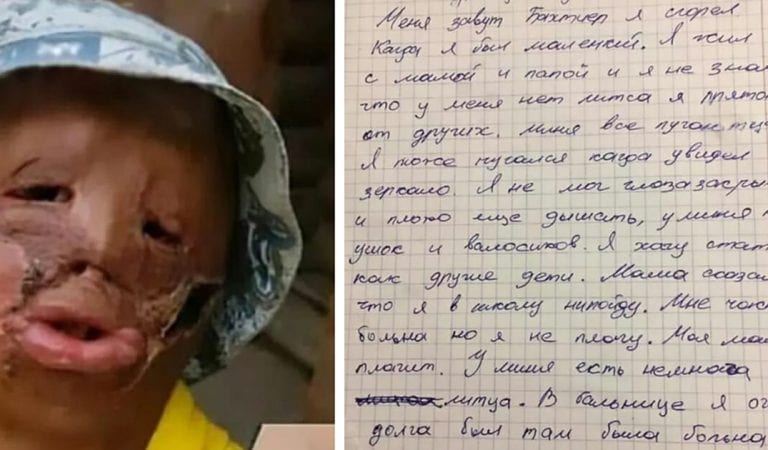 Меня завут Бахтиер я сгорел
Кагда я был маленкий. Я жил
с мамой и папой и я не знал
что у меня нет литса я прято
от других. миня все
Я тоже пугался кагда увидел
зеркало. Я не мог глаза
и плохо ище дышать, у миня
ушок и валосиков. Я хочу стат
как другие дети. Мама сказал
что я в школу нипойду. Мне
больна но я не плачу. Моя ма
плачит. У миня есть немнога
литца. В бальнице я оч
долга был там была больна